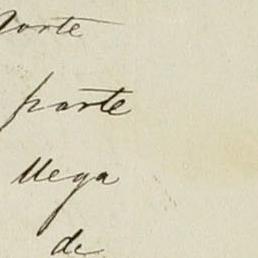 Norte
parte
llega
de